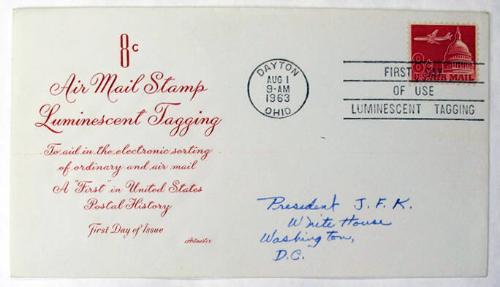 8c
Air Mail Stamp
Luminescent Tagging
To aid in the electronic sorting
of ordinary and air mail
A "First" in United States
Postal History
First Day of Issue
Artmaster
DAYTON
AUG 1
9-AM
1963
OHIO
8c
U.S. AIR MAIL
FIRST DAY
OF USE
LUMINESCENT TAGGING
President J. F. K.
White House
Washington,
D.C.